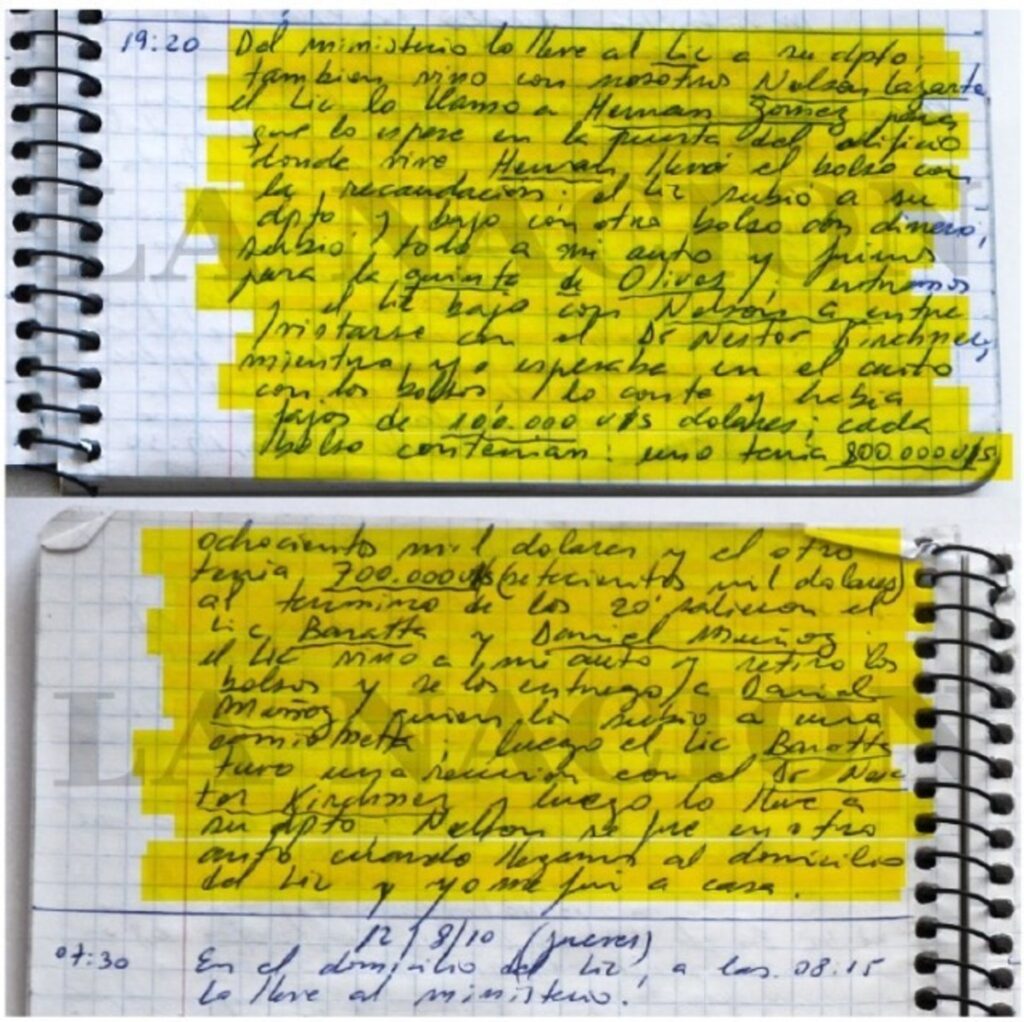 19:20 Del ministerio lo lleve al Lic a su dpto,
tambien vino con nosotros Nelson Lazarte
el Lic lo llamo a Hernan Gomez para
que lo espere en la puerta del edificio
donde vive Hernan llevó el bolso con
la recaudacion; el Lic subio a su
dpto y bajo con otro bolso con dinero,
subio todo a mi auto y fuimos
para la quinta de Olivos; entramos
y el Lic bajo con Nelson a entre
vistarse con el Dr Nestor Kirchner,
mientras yo esperaba en el auto
con los bolsos, lo conte y habia
fajos de 100.000 U$S dolares; cada
bolso contenian: uno tenia 800.000 U$S
ochocientos mil dolares y el otro
tenia 700.000 U$S (setecientos mil dolares)
al termino de los 20' salieron el
Lic Baratta y Daniel Muñoz
el Lic vino a mi auto y retiro los
bolsos y se los entrego a Daniel
Muñoz quien los subio a una
camionetta; luego el Lic Baratta
tuvo una reunion con el Dr Nes
tor Kirchner y luego lo lleve a
su dpto. Nelson se fue en otro
auto cuando llegamos al domicilio
del Lic y yo me fui a casa.
12/8/10 (jueves)
07:30 En el domicilio del Lic, a las 08:15
lo lleve al ministerio.
LA NACION
LA NACION